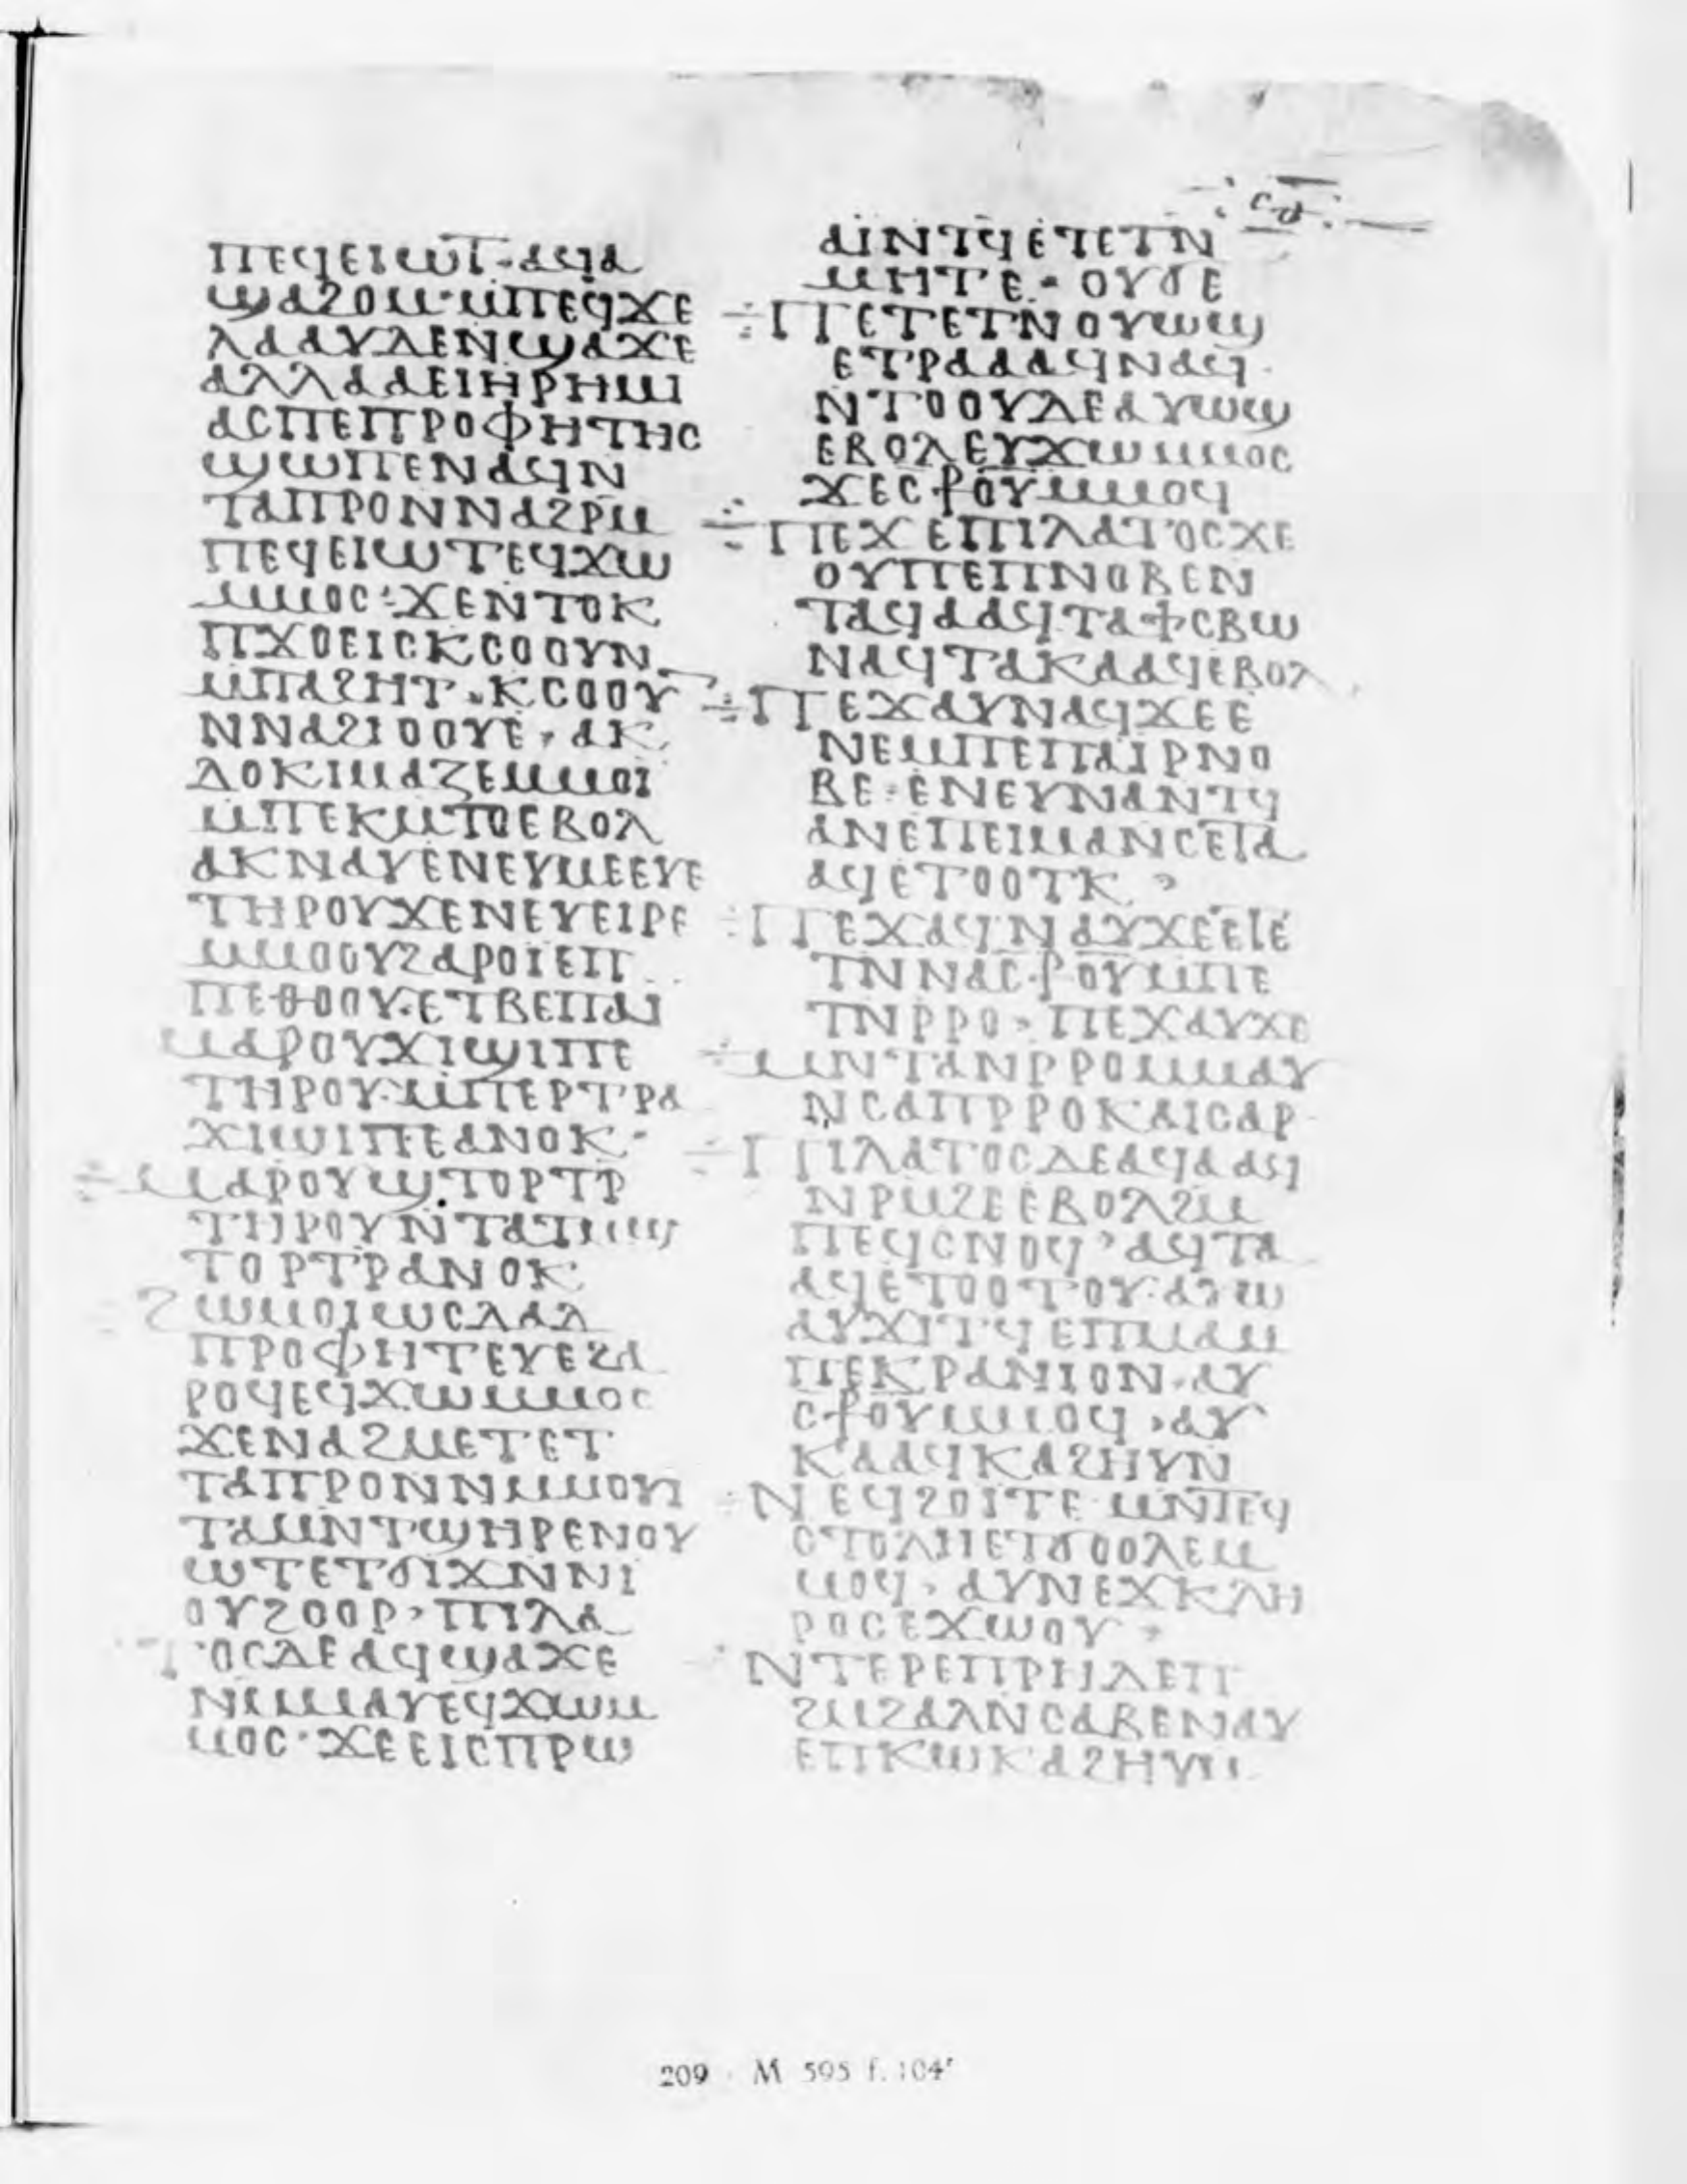 ⲥⲑ
ⲡⲉϥⲉⲓⲱⲧ· ⲁϥⲁ
ϣⲁϩⲟⲙ· ⲙⲡⲉϥϫⲉ
ⲗⲁⲁⲩⲇⲉⲛϣⲁϫⲉ
ⲁⲗⲗⲁⲁⲉⲓⲏⲣⲏⲙⲓ
ⲁⲥⲡⲉⲡⲣⲟⲫⲏⲧⲏⲥ
ϣⲱⲡⲉⲛⲁϥⲛ
ⲧⲁⲡⲣⲟⲛⲛⲁϩⲣⲙ
ⲡⲉϥⲉⲓⲱⲧⲉϥϫⲱ
ⲙⲙⲟⲥ· ϫⲉⲛⲧⲟⲕ
ⲡϫⲟⲉⲓⲥⲕⲥⲟⲟⲩⲛ
ⲙⲡⲁϩⲏⲧ· ⲕⲥⲟⲟⲩ
ⲛⲛⲁϩⲓⲟⲟⲩⲉ· ⲁⲕ
ⲇⲟⲕⲓⲙⲁⲍⲉⲙⲙⲟⲓ
ⲙⲡⲉⲕⲙⲧⲟⲉⲃⲟⲗ
ⲁⲕⲛⲁⲩⲉⲛⲉⲩⲙⲉⲉⲩⲉ
ⲧⲏⲣⲟⲩϫⲉⲛⲉⲩⲉⲓⲣⲉ
ⲙⲙⲟⲟⲩϩⲁⲣⲟⲓⲉⲡ
ⲡⲉⲑⲟⲟⲩ· ⲉⲧⲃⲉⲡⲁⲓ
ⲙⲁⲣⲟⲩϫⲓϣⲓⲡⲉ
ⲧⲏⲣⲟⲩ· ⲙⲡⲉⲣⲧⲣⲁ
ϫⲓϣⲓⲡⲉⲁⲛⲟⲕ·
ⲙⲁⲣⲟⲩϣⲧⲟⲣⲧⲣ
ⲧⲏⲣⲟⲩⲛⲧⲁⲧⲙϣ
ⲧⲟⲣⲧⲣⲁⲛⲟⲕ
ϩⲱⲙⲟⲓⲱⲥⲇⲁⲇ
ⲡⲣⲟⲫⲏⲧⲉⲩⲉϩⲁ
ⲣⲟϥⲉϥϫⲱⲙⲙⲟⲥ
ϫⲉⲛⲁϩⲙⲉⲧⲉⲧ
ⲧⲁⲡⲣⲟⲛⲛⲙⲙⲟⲩⲓ
ⲧⲁⲙⲛⲧϣⲏⲣⲉⲛⲟⲩ
ⲱⲧⲉⲧϭⲓϫⲛⲛⲓ
ⲟⲩϩⲟⲟⲣ· ⲡⲓⲗⲁ
ⲧⲟⲥⲇⲉⲁϥϣⲁϫⲉ
ⲛⲙⲙⲁⲩⲉϥϫⲱⲙ
ⲙⲟⲥ· ϫⲉⲉⲓⲥⲡⲣⲱ
ⲁⲓⲛⲧϥⲉⲧⲉⲧⲛ
ⲙⲏⲧⲉ· ⲟⲩϭⲉ
ⲡⲉⲧⲉⲧⲛⲟⲩⲱϣ
ⲉⲧⲣⲁⲁⲁϥⲛⲁϥ·
ⲛⲧⲟⲟⲩⲇⲉⲁⲩⲱϣ
ⲉⲃⲟⲗⲉⲩϫⲱⲙⲙⲟⲥ
ϫⲉⲥ⳨ⲟⲩⲙⲙⲟϥ
ⲡⲉϫⲉⲡⲓⲗⲁⲧⲟⲥϫⲉ
ⲟⲩⲡⲉⲡⲛⲟⲃⲉⲛ
ⲧⲁϥⲁⲁϥⲧⲁϯⲥⲃⲱ
ⲛⲁϥⲧⲁⲕⲁⲁϥⲉⲃⲟⲗ
ⲡⲉϫⲁⲩⲛⲁϥϫⲉⲉ
ⲛⲉⲙⲡⲉⲡⲁⲓⲣⲛⲟ
ⲃⲉ· ⲉⲛⲉⲩⲛⲁⲛⲧϥ
ⲁⲛⲉⲡⲉⲓⲙⲁⲛⲥⲉⲧⲁ
ⲁϥⲉⲧⲟⲟⲧⲕ
ⲡⲉϫⲁϥⲛⲁⲩϫⲉⲉⲓⲉ
ⲧⲛⲛⲁⲥ⳨ⲟⲩⲙⲡⲉ
ⲧⲛⲣⲣⲟ· ⲡⲉϫⲁⲩϫⲉ
ⲙⲛⲧⲁⲛⲣⲣⲟⲙⲙⲁⲩ
ⲛⲥⲁⲡⲣⲣⲟⲕⲁⲓⲥⲁⲣ
ⲡⲓⲗⲁⲧⲟⲥⲇⲉⲁϥⲁⲁϥ
ⲛⲣⲙϩⲉⲉⲃⲟⲗϩⲙ
ⲡⲉϥⲥⲛⲟϥ· ⲁϥⲧⲁ
ⲁϥⲉⲧⲟⲟⲧⲟⲩ· ⲁⲩⲱ
ⲁⲩϫⲓⲧϥⲉⲡⲙⲁⲙ
ⲡⲉⲕⲣⲁⲛⲓⲟⲛ· ⲁⲩ
ⲥ⳨ⲟⲩⲙⲙⲟϥ· ⲁⲩ
ⲕⲁⲁϥⲕⲁϩⲏⲩⲛ
ⲛⲉϥϩⲟⲓⲧⲉ· ⲙⲛⲧⲉϥ
ⲥⲧⲟⲗⲏⲉⲧϭⲟⲟⲗⲉⲙ
ⲙⲟϥ· ⲁⲩⲛⲉϫⲕⲗⲏ
ⲣⲟⲥⲉϫⲱⲟⲩ
ⲛⲧⲉⲣⲉⲡⲣⲏⲇⲉⲡ
ϩⲙϩⲁⲗⲛⲥⲁⲃⲉⲛⲁⲩ
ⲉⲡⲕⲱⲕⲁϩⲏⲩ
209 M 595 f. 104r